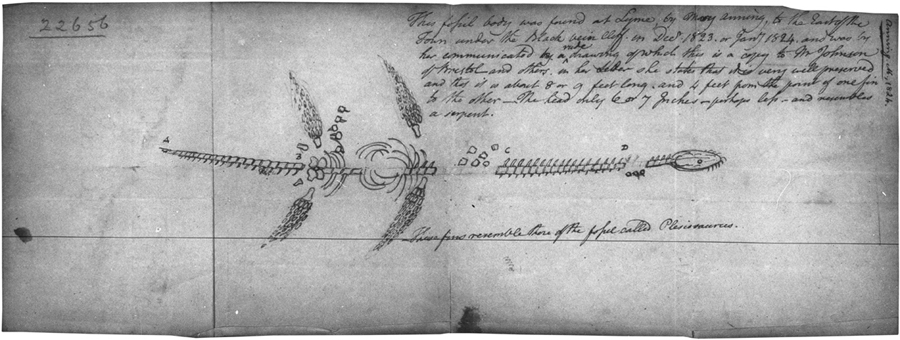 22656
This fossil body was found at Lyme, by Mary Anning, to the East of the
Town under the Black vein Cliff. in Decr. 1823. or Jany. 1824. and was by
her communicated by a rude drawing of which this is a copy to Mr Johnson
of Bristol and others, in her Letter she states that it is very well preserved
and tis is about 8 or 9 feet long. and 4 feet from the point of one fin
to the other — The head only 6 or 7 Inches — perhaps less — and resembles
a serpent.
Anning. M. 1824.
A
B
C
D
These fins resemble those of the fossil called Plesiosaurus.